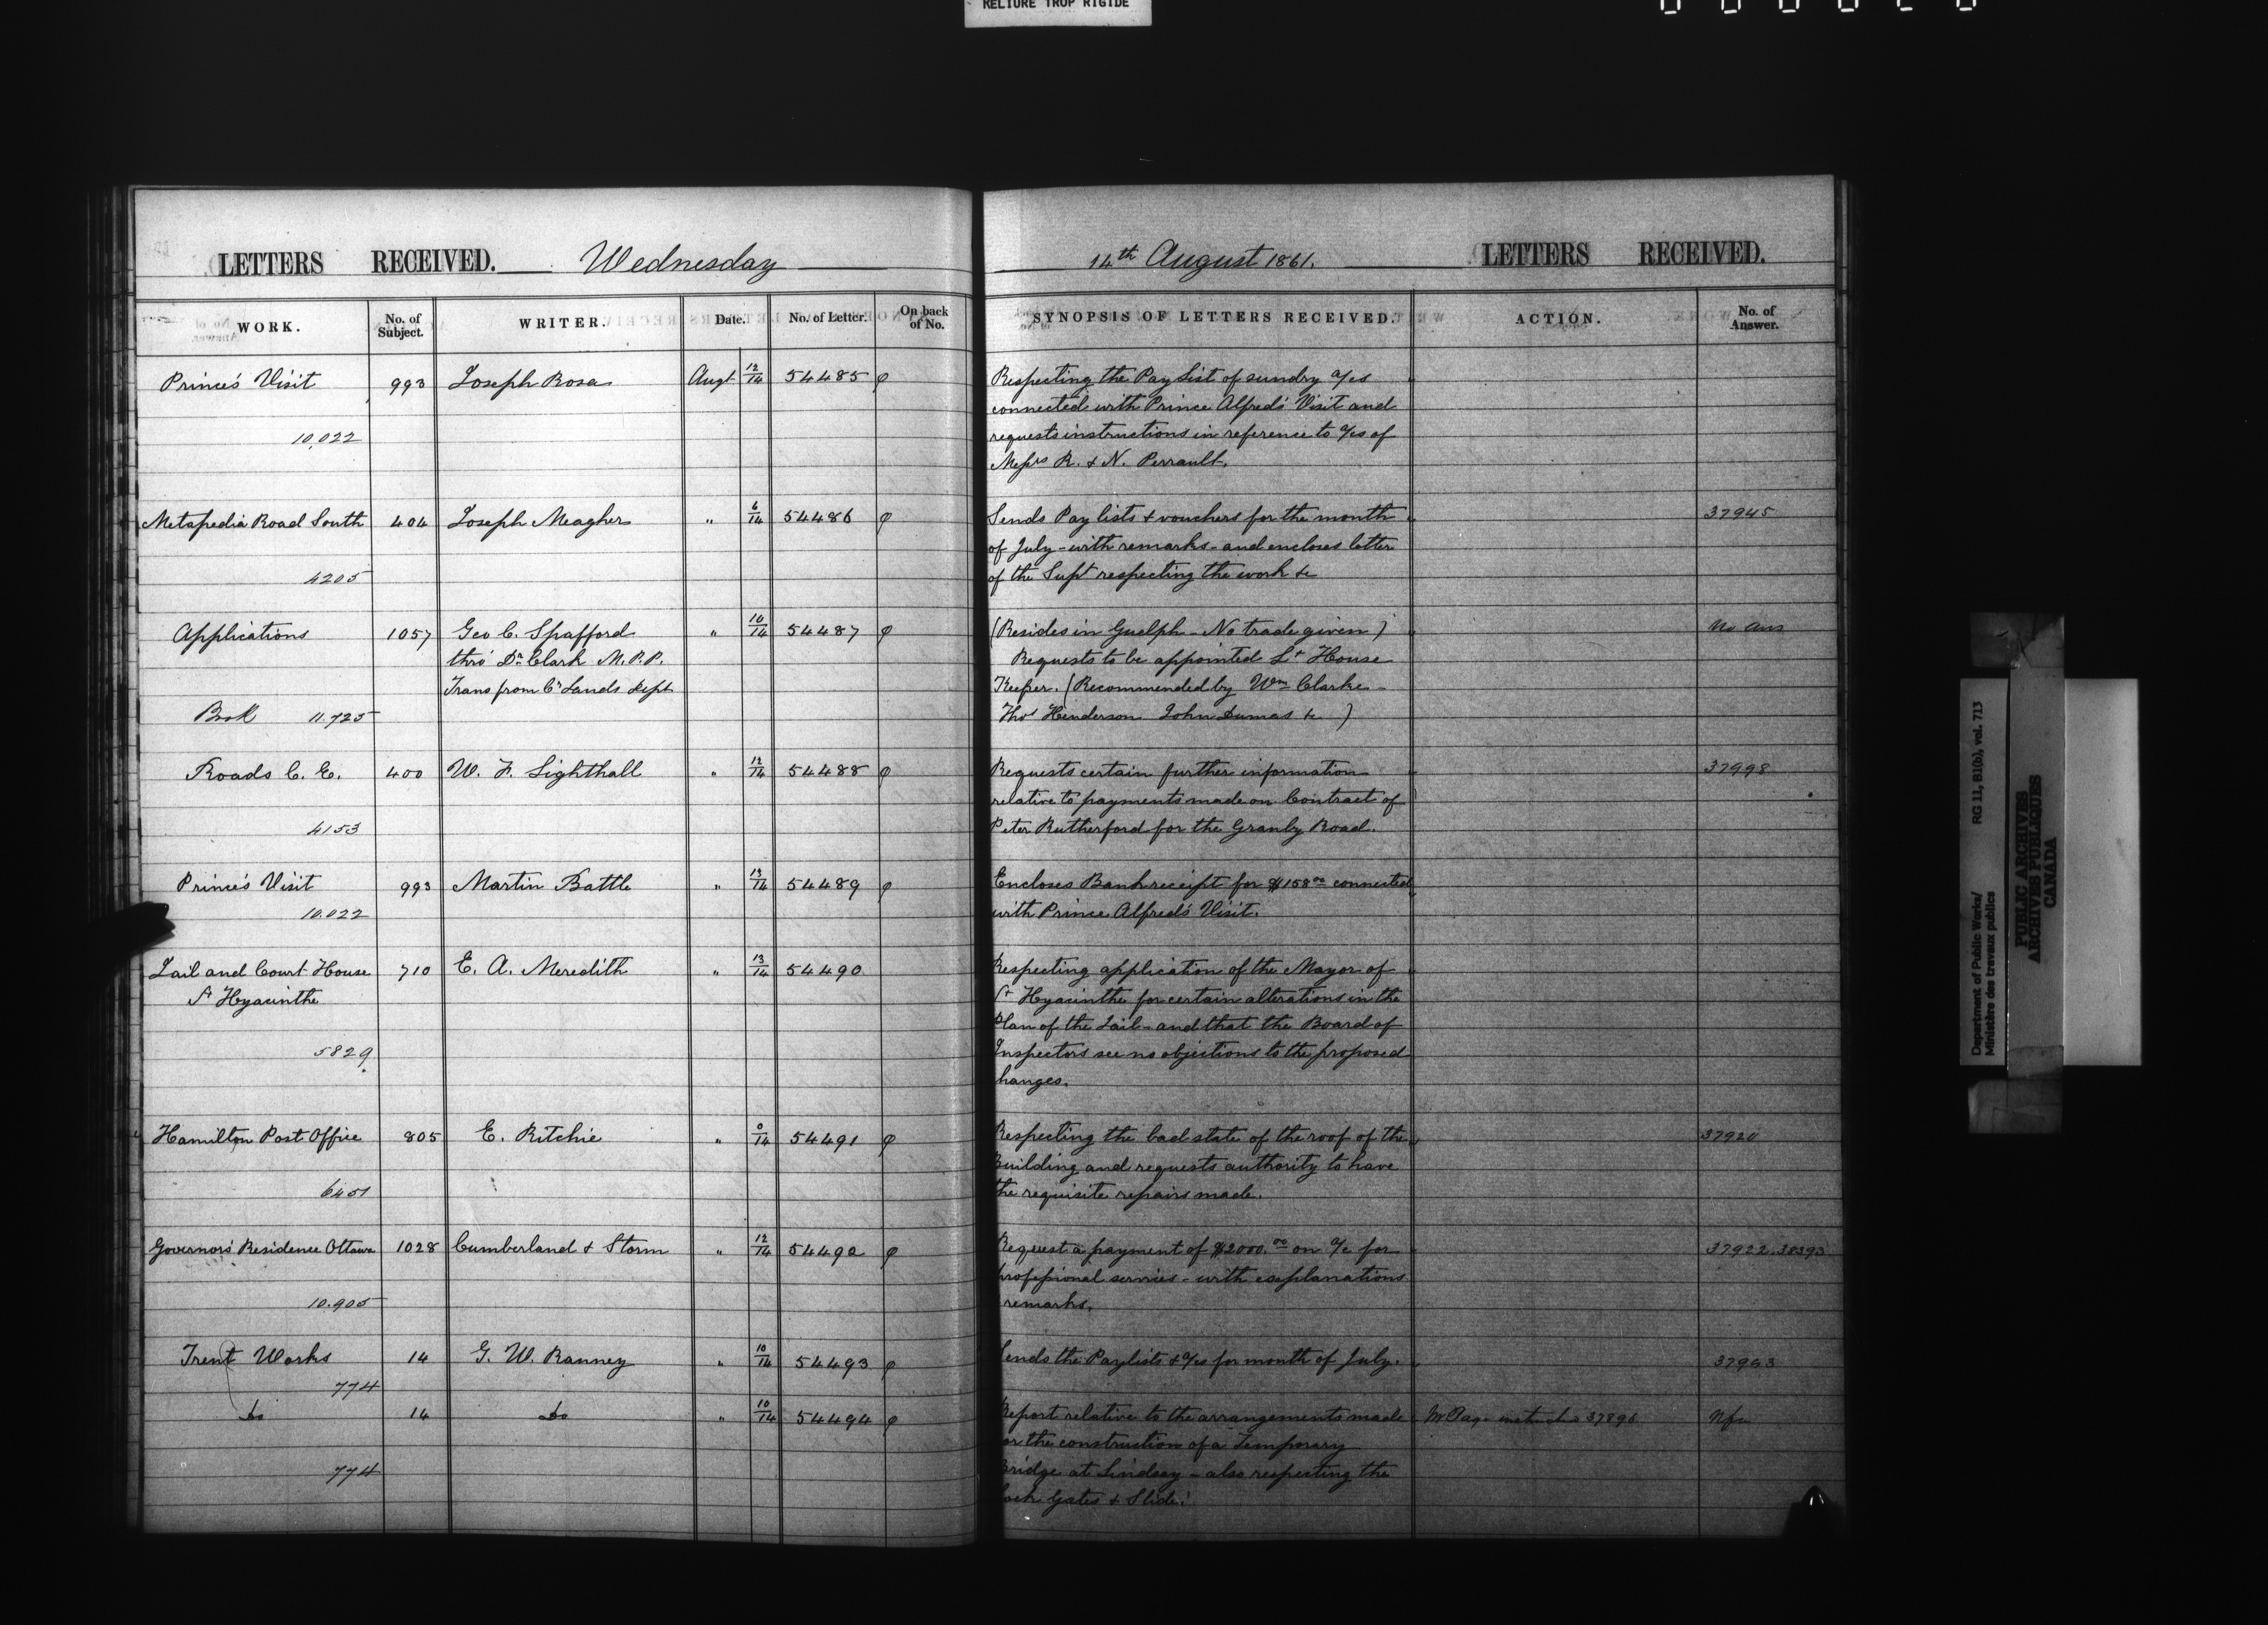 RELIURE TROP RIGIDE
LETTERS RECEIVED. Wednesday
WORK. No. of Subject. WRITER. Date. No. of Letter. On back of No.
Prince's Visit 993 Joseph Rosa Augt 12/14 54485
10,022
Metapedia Road South 404 Joseph Meagher " 6/14 54486
4205
Applications 1057 Geo C. Spafford " 10/14 54487
thro' Dr. Clark M.P.P.
Trans from Cn Lands Dept
Book 11.725
Roads C. E. 400 W. F. Lighthall " 12/14 54488
4153
Prince's Visit 993 Martin Battle " 13/14 54489
10.022
Jail and Court House 710 E. A. Meredith " 13/14 54490
St Hyacinthe
5829
Hamilton Post Office 805 E. Ritchie " 0/14 54491
6451
Governors' Residence Ottawa 1028 Cumberland & Storm " 12/14 54492
10.905
Trent Works 14 G. W. Ranney " 10/14 54493
774
Do 14 Do " 10/14 54494
774
14th August 1861. LETTERS RECEIVED.
SYNOPSIS OF LETTERS RECEIVED. ACTION. No. of Answer.
Respecting the Pay List of sundry a/cs
connected with Prince Alfred's Visit and
requests instructions in reference to a/cs of
Messrs R. & N. Perrault.
Sends Pay lists & vouchers for the month 37945
of July - with remarks - and encloses letter
of the Supt respecting the work &c
(Resides in Guelph - No trade given) No Ans
Requests to be appointed Lt House
Keeper. (Recommended by Wm Clarke -
Thos Henderson John Dumas &c)
Requests certain further information 37998
relative to payments made on Contract of
Peter Rutherford for the Granby Road.
Encloses Bank receipt for $158.00 connected
with Prince Alfred's Visit.
Respecting application of the Mayor of
St Hyacinthe for certain alterations in the
Plan of the Jail - and that the Board of
Inspectors see no objections to the proposed
hanges.
Respecting the bad state of the roof of the 37920
Building and requests authority to have
the requisite repairs made.
Request a payment of $2000.00 on a/c for 37922.38393
professional services - with explanations
remarks.
Sends the Paylists & a/cs for month of July.
Report relative to the arrangements made Mr Page 37896
or the construction of a Temporary
Bridge at Lindsay - also respecting the
ock Gates & Slide.
Department of Public Works/ RG 11, B1(b), vol. 713
Ministère des travaux publics
PUBLIC ARCHIVES
ARCHIVES PUBLIQUES
CANADA